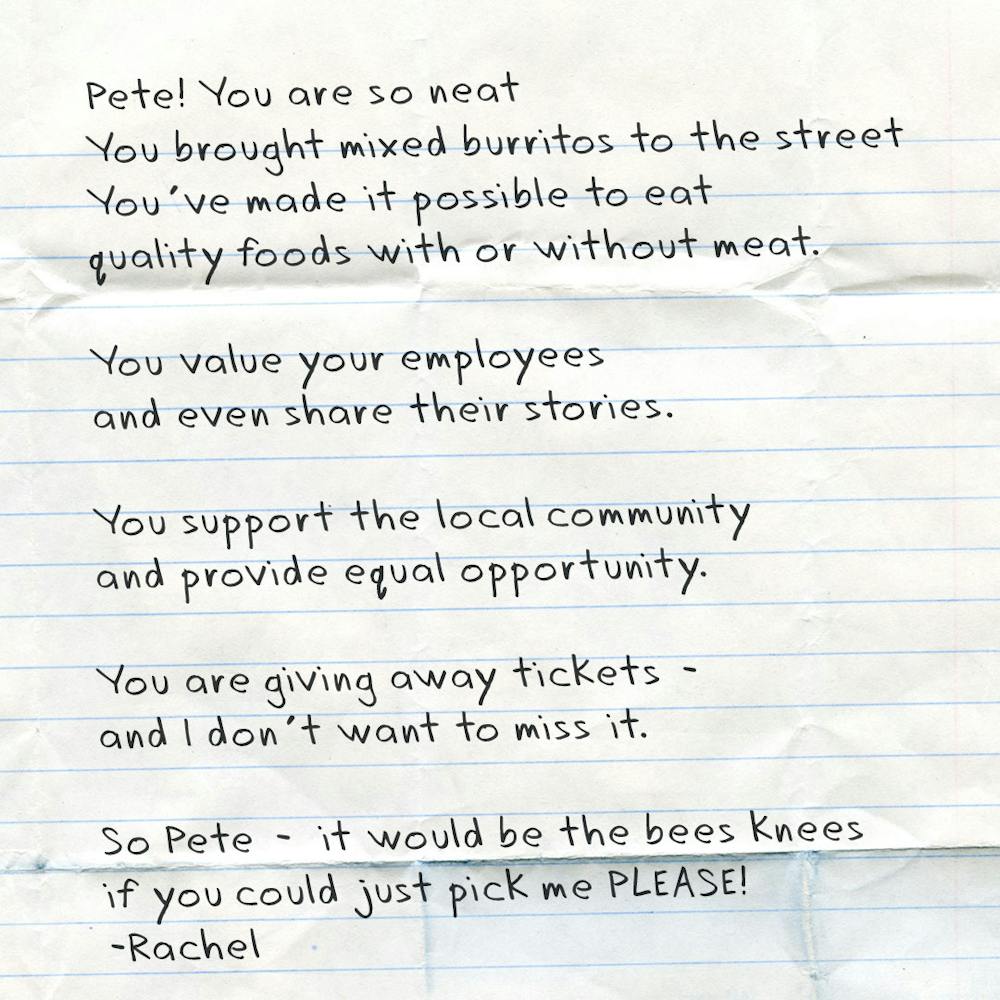 Pete! You are so neat
You brought mixed burritos to the street
You've made it possible to eat
quality foods with or without meat.
You value your employees
and even share their stories.
You support the local community
and provide equal opportunity.
You are giving away tickets -
and I don't want to miss it.
So Pete - it would be the bees knees
if you could just pick me PLEASE!
-Rachel